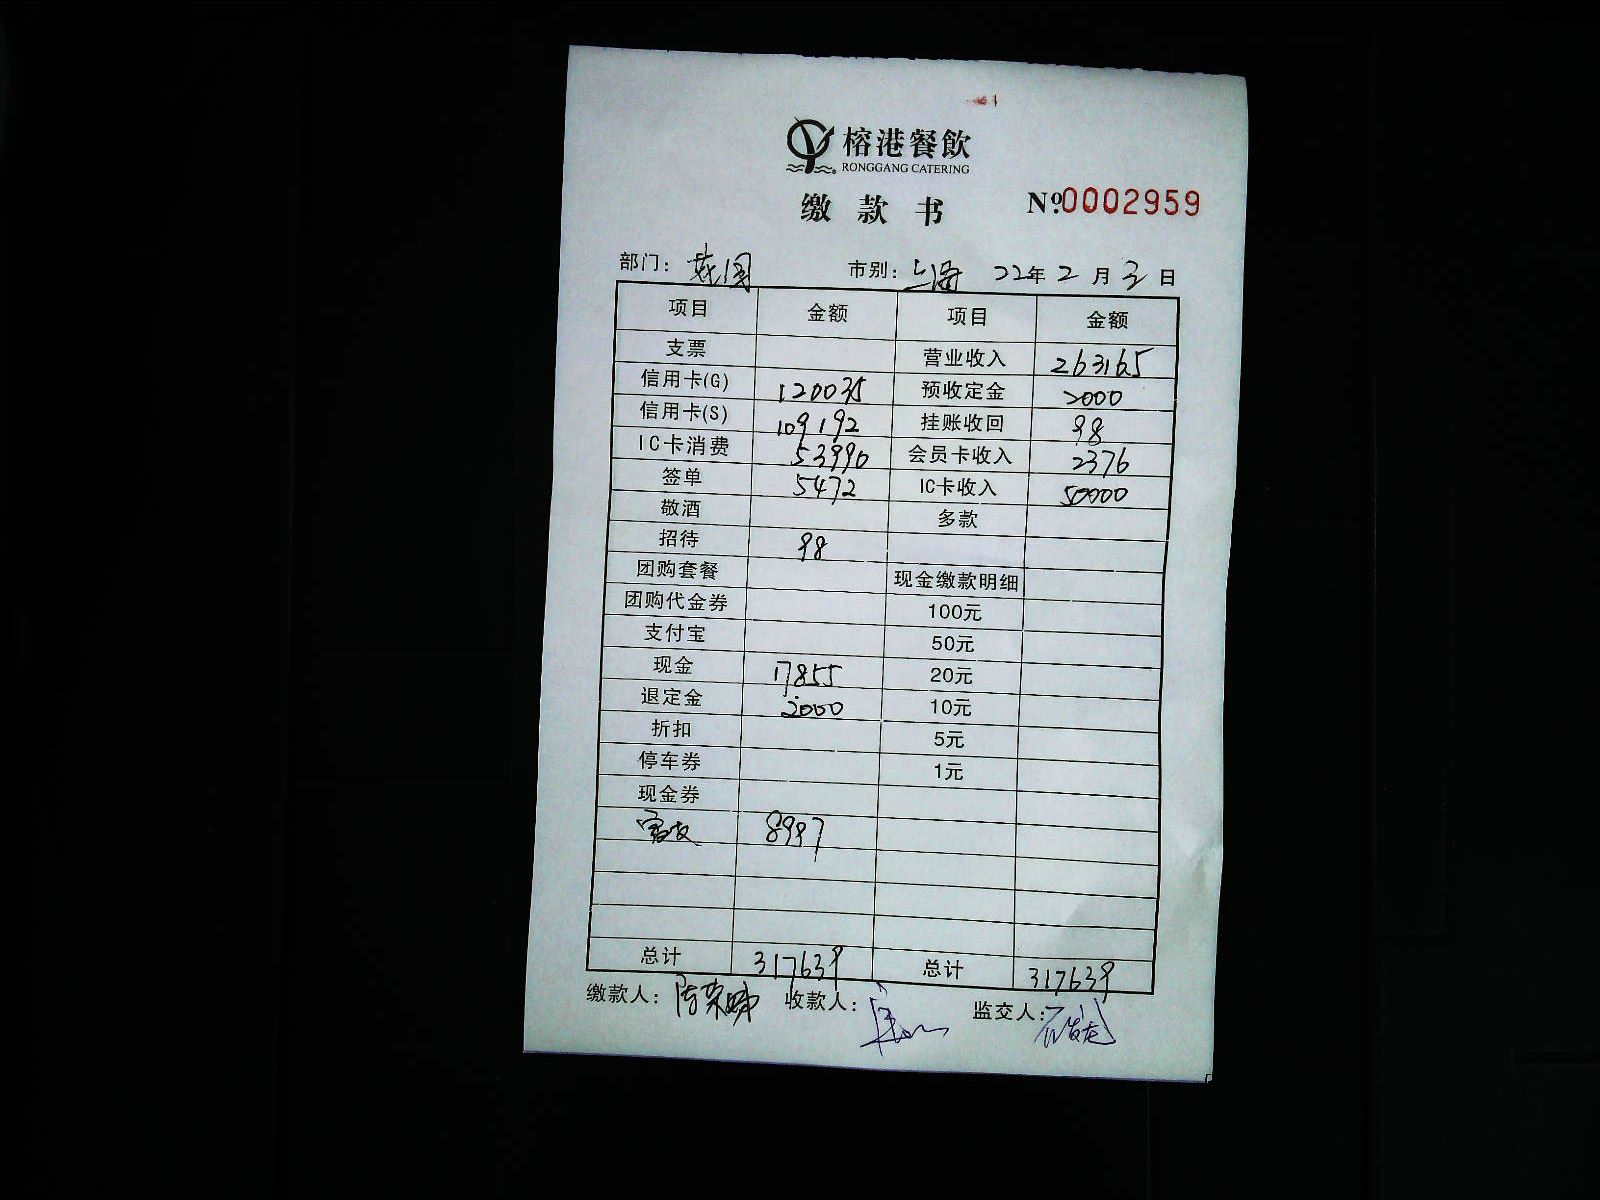 榕港餐飲
RONGGANG CATERING
缴款书 Nº.0002959
部门： 市别：上海 22年2月3日
项目 金额 项目 金额
支票 营业收入 263165
信用卡(G) 120035 预收定金 2000
信用卡(S) 109192 挂账收回 98
IC卡消费 53990 会员卡收入 2376
签单 5472 IC卡收入 50000
敬酒 多款
招待 98
团购套餐 现金缴款明细
团购代金券 100元
支付宝 50元
现金 17855 20元
退定金 2000 10元
折扣 5元
停车券 1元
现金券
8997
总计 317639 总计 317639
缴款人： 收款人： 监交人：